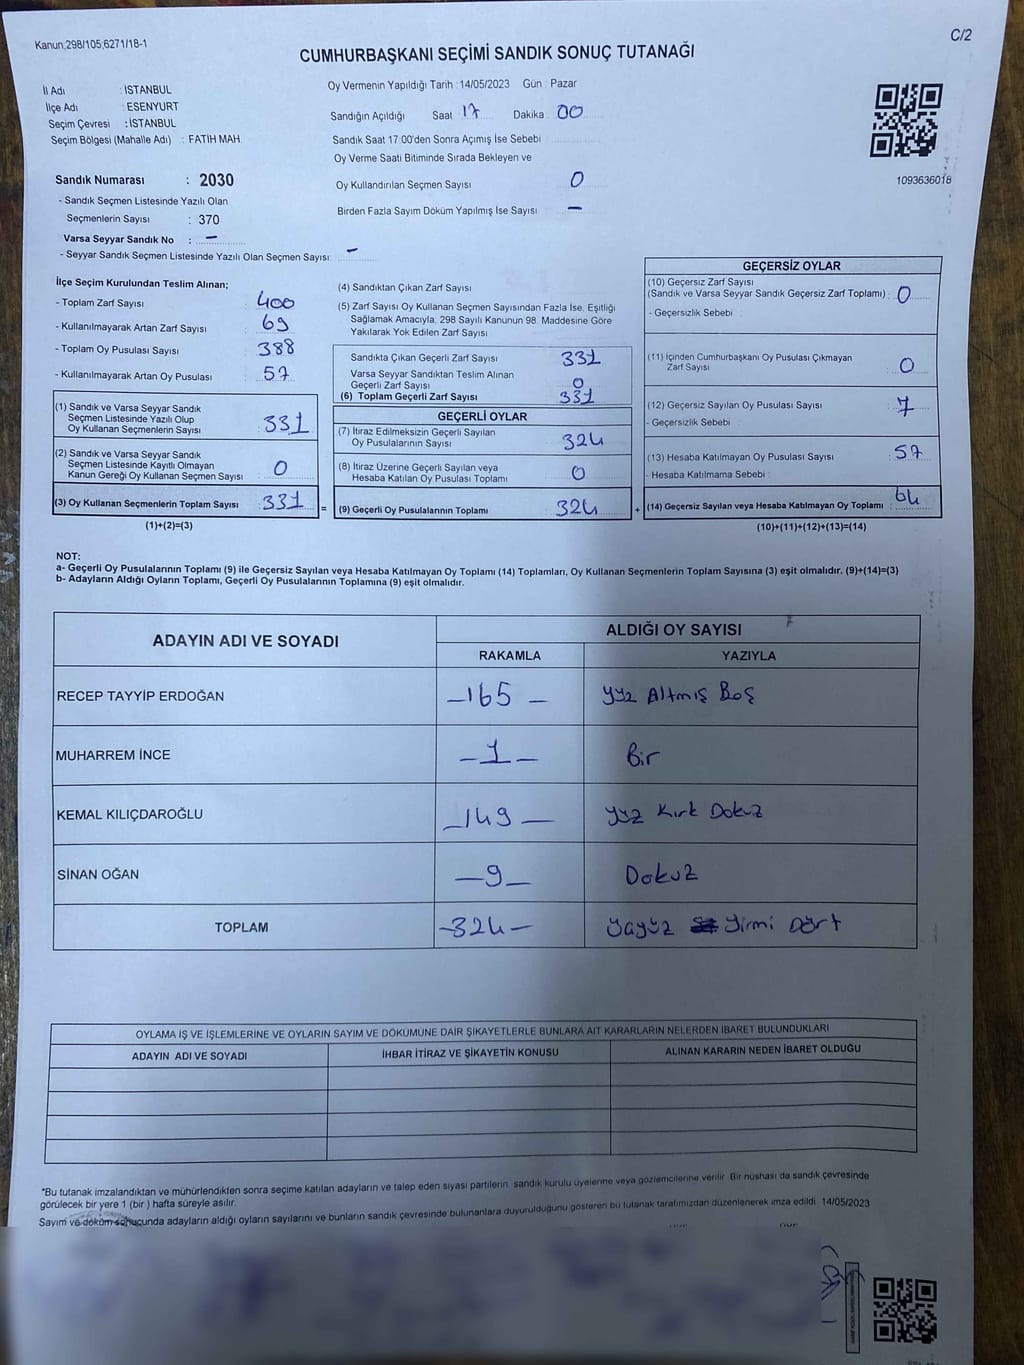 Kanun;298/105;6271/18-1
C/2
CUMHURBAŞKANI SEÇİMİ SANDIK SONUÇ TUTANAĞI
İl Adı : İSTANBUL
İlçe Adı : ESENYURT
Seçim Çevresi : İSTANBUL
Seçim Bölgesi (Mahalle Adı) : FATİH MAH.
Oy Vermenin Yapıldığı Tarih : 14/05/2023 Gün : Pazar
Sandığın Açıldığı Saat 17 Dakika 00
Sandık Saat 17:00'den Sonra Açımış İse Sebebi
Oy Verme Saati Bitiminde Sırada Bekleyen ve
Oy Kullandırılan Seçmen Sayısı 0
Birden Fazla Sayım Döküm Yapılmış İse Sayısı –
1093636018
Sandık Numarası : 2030
- Sandık Seçmen Listesinde Yazılı Olan
Seçmenlerin Sayısı : 370
Varsa Seyyar Sandık No : –
- Seyyar Sandık Seçmen Listesinde Yazılı Olan Seçmen Sayısı: –
İlçe Seçim Kurulundan Teslim Alınan;
- Toplam Zarf Sayısı 400
- Kullanılmayarak Artan Zarf Sayısı 69
- Toplam Oy Pusulası Sayısı 388
- Kullanılmayarak Artan Oy Pusulası 57
(1) Sandık ve Varsa Seyyar Sandık
Seçmen Listesinde Yazılı Olup
Oy Kullanan Seçmenlerin Sayısı : 331
(2) Sandık ve Varsa Seyyar Sandık
Seçmen Listesinde Kayıtlı Olmayan
Kanun Gereği Oy Kullanan Seçmen Sayısı : 0
(3) Oy Kullanan Seçmenlerin Toplam Sayısı : 331
(1)+(2)=(3)
(4) Sandıktan Çıkan Zarf Sayısı
(5) Zarf Sayısı Oy Kullanan Seçmen Sayısından Fazla İse, Eşitliği
Sağlamak Amacıyla, 298 Sayılı Kanunun 98. Maddesine Göre
Yakılarak Yok Edilen Zarf Sayısı
Sandıkta Çıkan Geçerli Zarf Sayısı 331
Varsa Seyyar Sandıktan Teslim Alınan
Geçerli Zarf Sayısı 0
(6) Toplam Geçerli Zarf Sayısı 331
GEÇERLİ OYLAR
(7) İtiraz Edilmeksizin Geçerli Sayılan
Oy Pusulalarının Sayısı 324
(8) İtiraz Üzerine Geçerli Sayılan veya
Hesaba Katılan Oy Pusulası Toplamı 0
= (9) Geçerli Oy Pusulalarının Toplamı 324
GEÇERSİZ OYLAR
(10) Geçersiz Zarf Sayısı
(Sandık ve Varsa Seyyar Sandık Geçersiz Zarf Toplamı) : 0
- Geçersizlik Sebebi
(11) İçinden Cumhurbaşkanı Oy Pusulası Çıkmayan
Zarf Sayısı 0
(12) Geçersiz Sayılan Oy Pusulası Sayısı : 7
- Geçersizlik Sebebi
(13) Hesaba Katılmayan Oy Sayısı : 57
- Hesaba Katılmama Sebebi
+ (14) Geçersiz Sayılan veya Hesaba Katılmayan Oy Toplamı : 64
(10)+(11)+(12)+(13)=(14)
NOT:
a- Geçerli Oy Pusulalarının Toplamı (9) ile Geçersiz Sayılan veya Hesaba Katılmayan Oy Toplamı (14) Toplamları, Oy Kullanan Seçmenlerin Toplam Sayısına (3) eşit olmalıdır. (9)+(14)=(3)
b- Adayların Aldığı Oyların Toplamı, Geçerli Oy Pusulalarının Toplamına (9) eşit olmalıdır.
ADAYIN ADI VE SOYADI
ALDIĞI OY SAYISI
RAKAMLA YAZIYLA
RECEP TAYYİP ERDOĞAN –165 – Yüz Altmış Beş
MUHARREM İNCE –1– Bir
KEMAL KILIÇDAROĞLU –149 – Yüz Kırk Dokuz
SİNAN OĞAN –9– Dokuz
TOPLAM –324– Üçyüz Yirmi Dört
OYLAMA İŞ VE İŞLEMLERİNE VE OYLARIN SAYIM VE DÖKÜMÜNE DAİR ŞİKAYETLERLE BUNLARA AİT KARARLARIN NELERDEN İBARET BULUNDUKLARI
ADAYIN ADI VE SOYADI İHBAR İTİRAZ VE ŞİKAYETİN KONUSU ALINAN KARARIN NEDEN İBARET OLDUĞU
*Bu tutanak imzalandıktan ve mühürlendikten sonra seçime katılan adayların ve talep eden siyasi partilerin sandık kurulu üyelerine veya gözlemcilerine verilir. Bir nüshası da sandık çevresinde
görülecek bir yere 1 (bir ) hafta süreyle asılır.
Sayım ve döküm sonucunda adayların aldığı oyların sayılarını ve bunların sandık çevresinde bulunanlara duyurulduğunu gösteren bu tutanak tarafımızdan düzenlenerek imza edildi. 14/05/2023